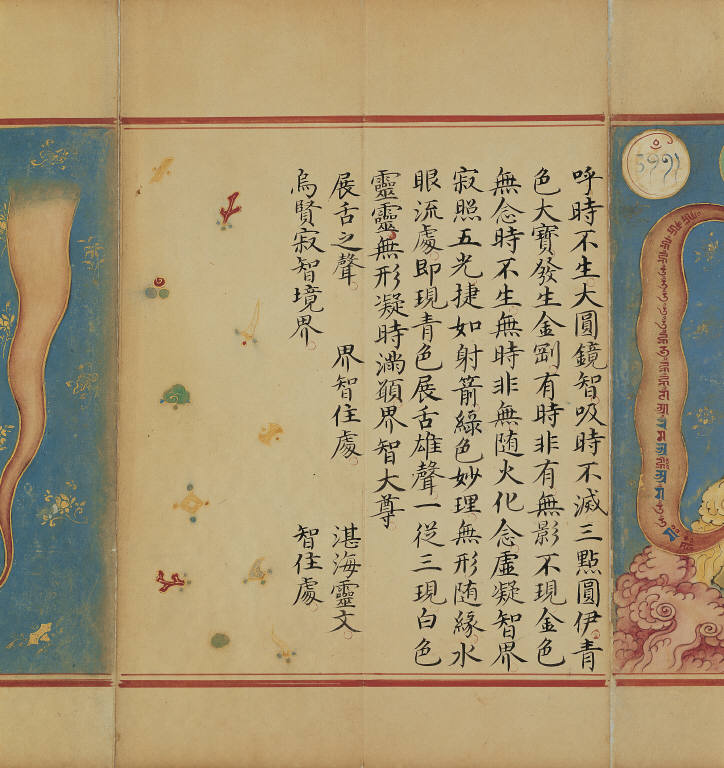 呼時不生大圓鏡智吸時不滅三點圓伊青
色大寶發生金剛有時非有無影不現金色
無念時不生無時非無随火化念虛凝智界
寂照五光捷如射箭綠色妙理無形随緣水
眼流處即現青色展舌雄聲一從三現白色
靈靈無形凝時滿願界智大尊
展舌之聲 界智住處 湛海靈文
烏賢寂智境界 智住處